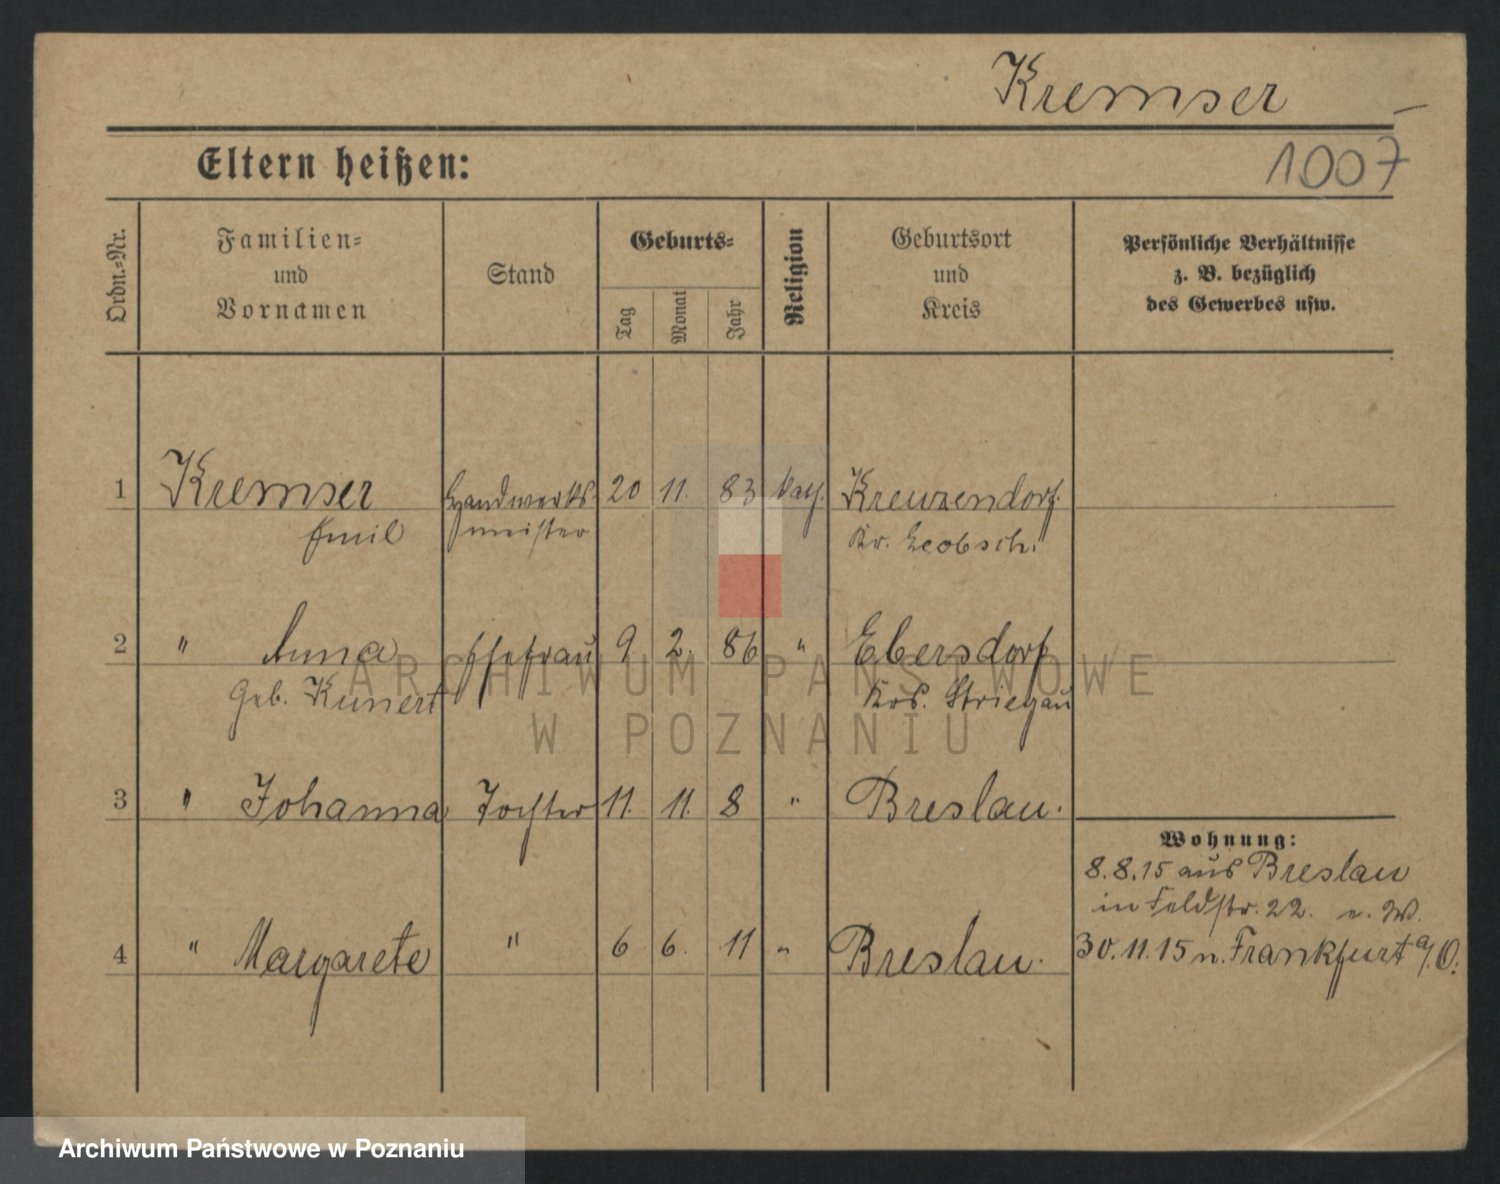 Kremser
1007
Eltern heißen:
Ordn.-Nr.
Familien-
und
Vornamen
Stand
Geburts-
Tag
Monat
Jahr
Religion
Geburtsort
und
Kreis
Persönliche Verhältnisse
z. B. bezüglich
des Gewerbes usw.
1 Kremser Handwerks 20 11. 83 Kath. Kreuzendorf
Emil meister Kr. Leobsch.
2 " Anna Ehefrau 9. 2. 86 " Ebersdorf
Geb. Kunert Krs. Striegau
ARCHIWUM PAŃSTWOWE
W POZNANIU
3 " Johanna Tochter 11. 11. 8 " Breslau.
Wohnung:
8.8.15 aus Breslau
in Feldstr. 22.
4 " Margarete " 6 6. 11 " Breslau. 30.11.15 n. Frankfurt a/O.
Archiwum Państwowe w Poznaniu